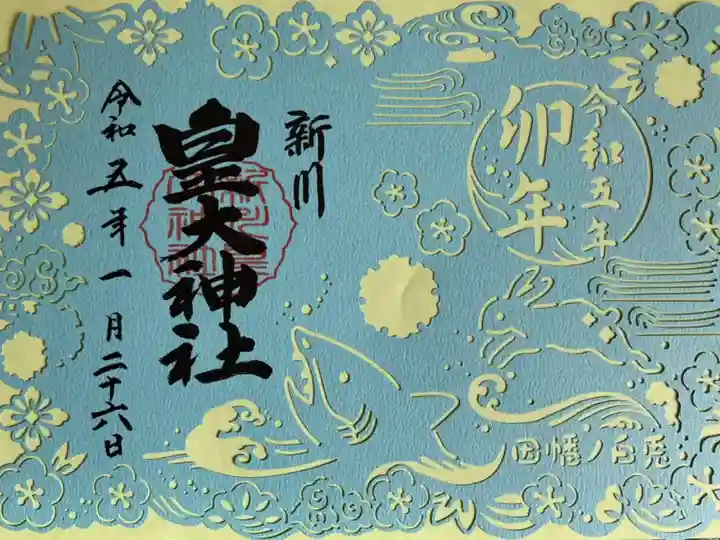 令和五年
卯年
因幡ノ白兎
新川
皇大神社
令和五年一月二十六日